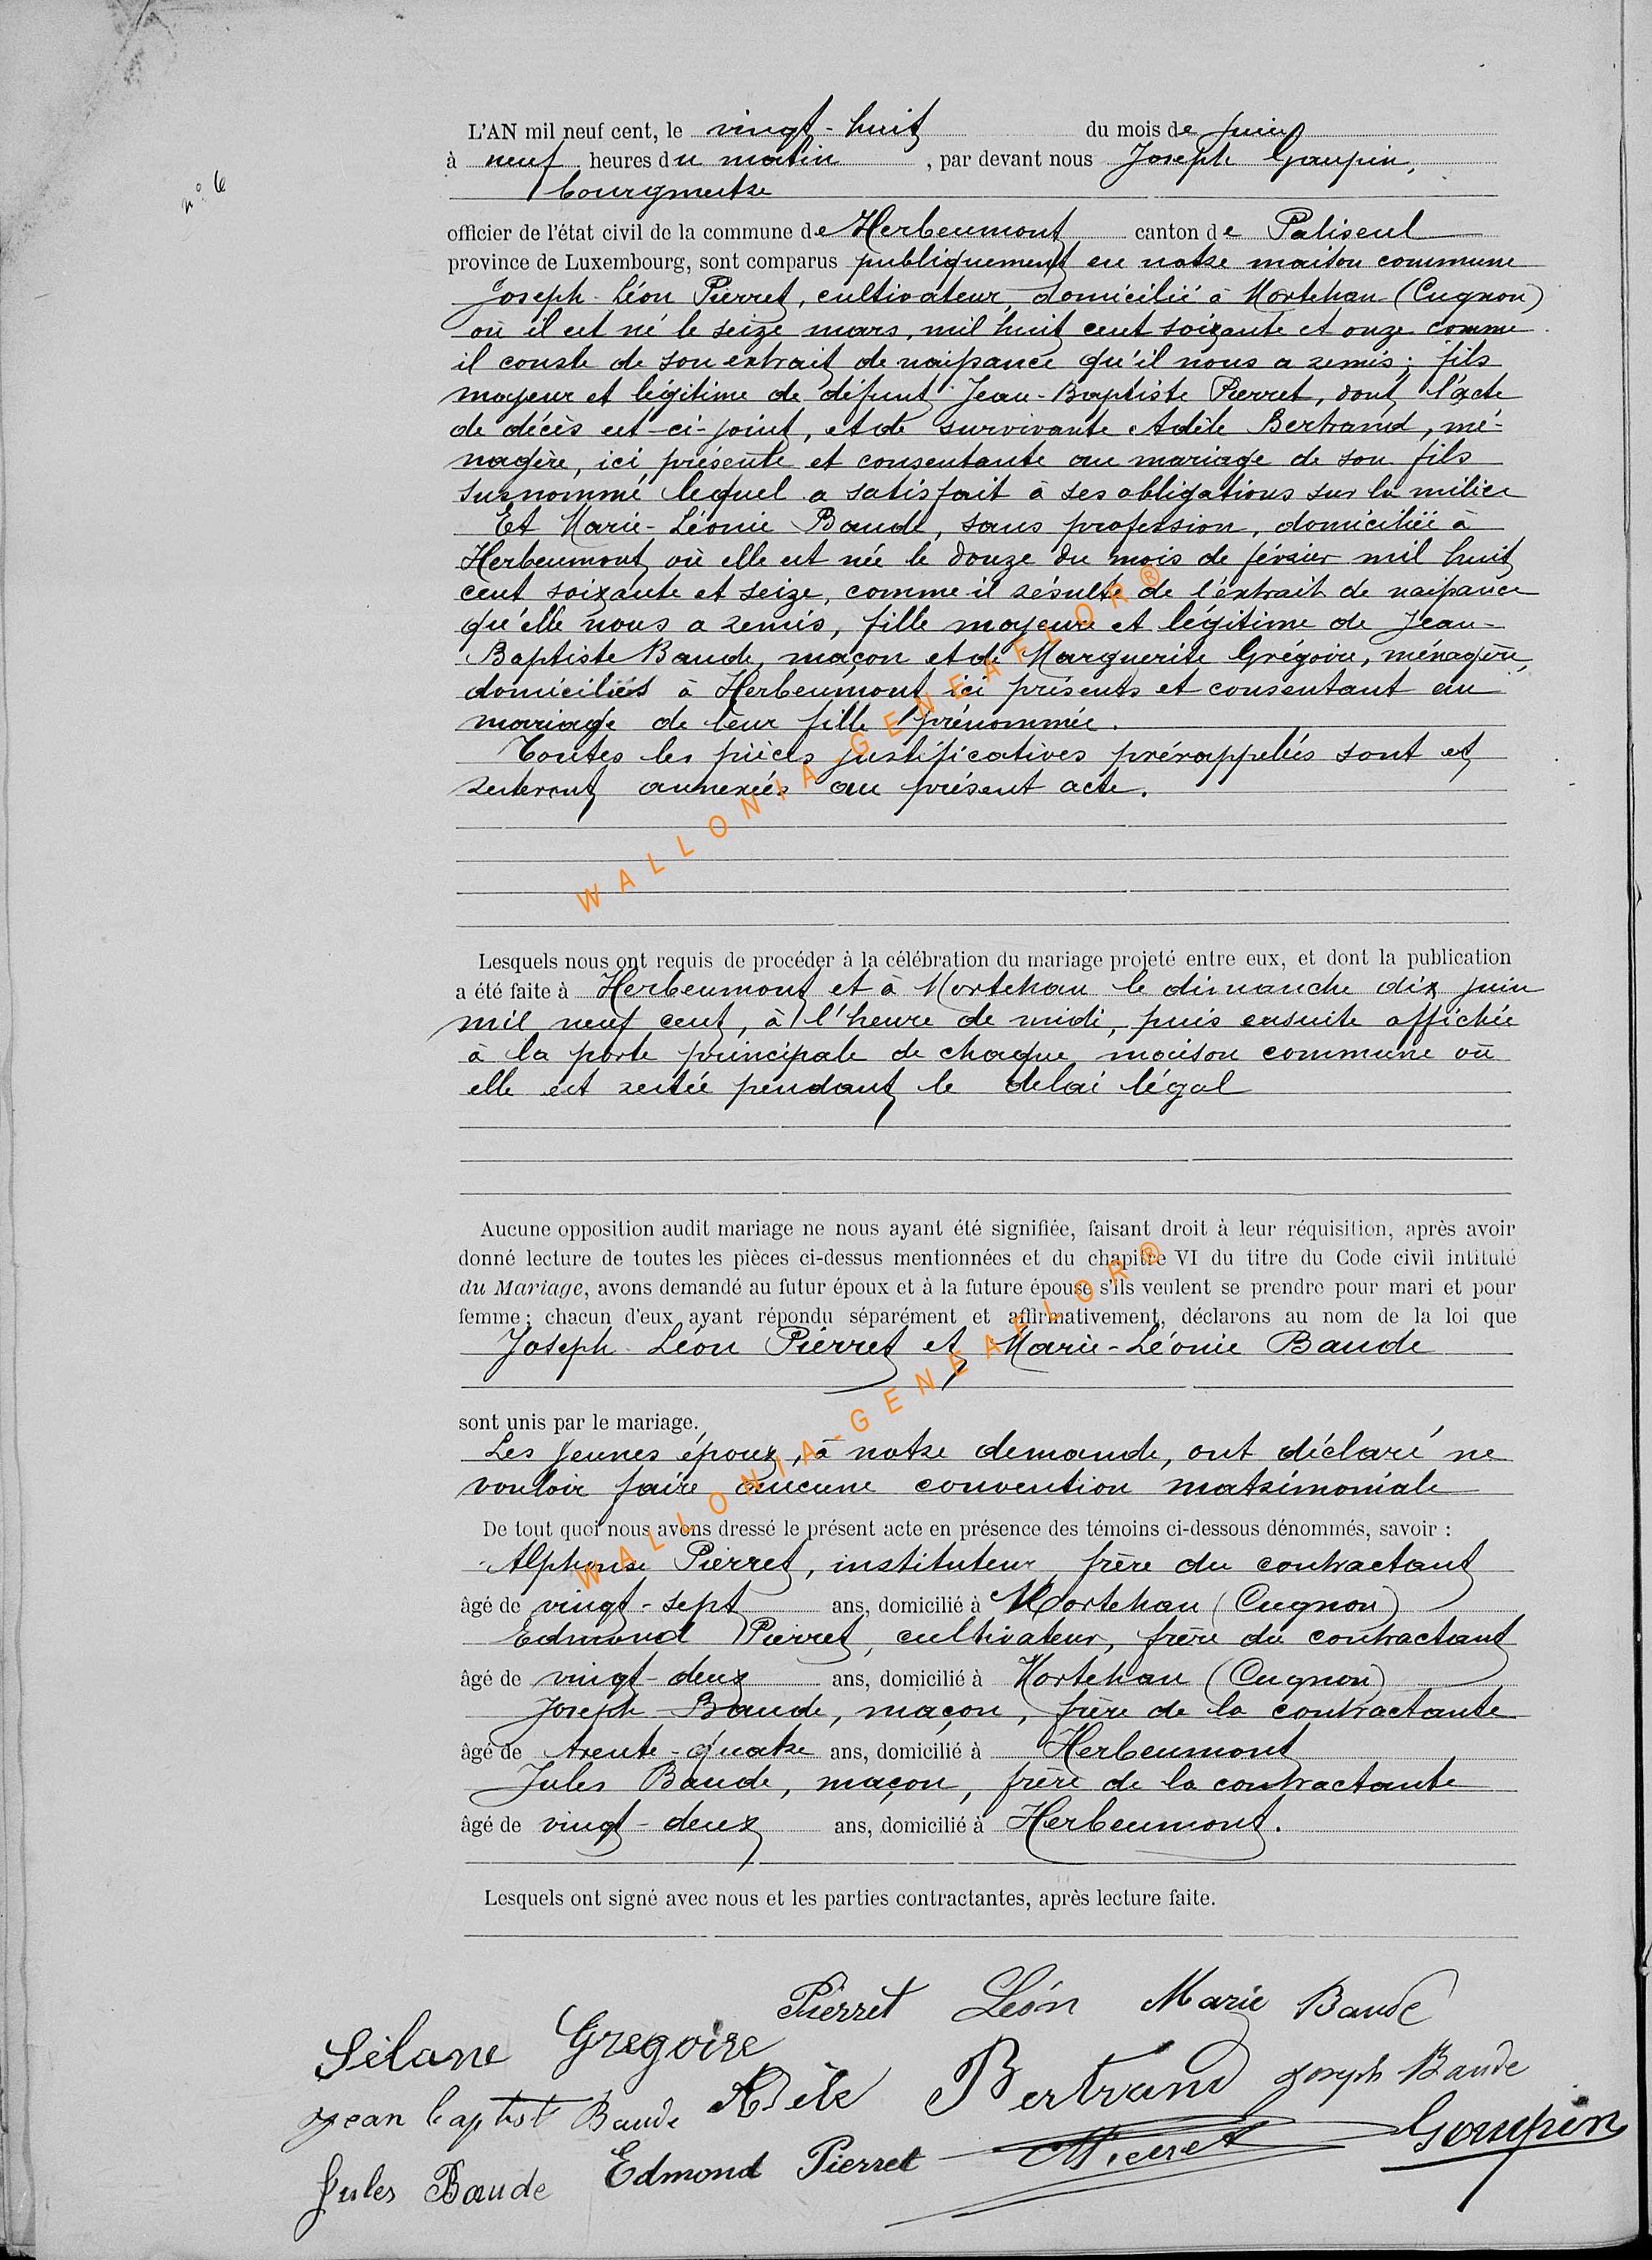 L'AN mil neuf cent, le vingt-huit du mois de juin
à neuf heures du matin, par devant nous Joseph Goupin,
nº 6
bourgmestre
officier de l'état civil de la commune de Herbeumont canton de Paliseul
province de Luxembourg, sont comparus publiquement en notre maison commune
Joseph-Léon Pierret, cultivateur, domicilié à Mortehan (Cugnon)
où il est né le seize mars, mil huit cent soixante et onze comme
il conste de son extrait de naissance qu'il nous a remis; fils
majeur et légitime de défunt Jean-Baptiste Pierret, dont l'acte
de décès est ci-joint, et de survivante Adèle Bertrand, mé-
nagère, ici présente et consentante au mariage de son fils
susnommé lequel a satisfait à ses obligations sur la milice
Et Marie-Léonie Baude, sans profession, domiciliée à
Herbeumont où elle est née le douze du mois de février mil huit
cent soixante et seize, comme il résulte de l'extrait de naissance
qu'elle nous a remis, fille majeure et légitime de Jean-
Baptiste Baude, maçon et de Marguerite Grégoire, ménagère,
domiciliés à Herbeumont ici présents et consentant au
mariage de leur fille prénommée.
Toutes les pièces justificatives prérappelées sont et
resteront annexées au présent acte.
WALLONIA-GENEAFLOR®
Lesquels nous ont requis de procéder à la célébration du mariage projeté entre eux, et dont la publication
a été faite à Herbeumont et à Mortehan le dimanche dix juin
mil neuf cent, à l'heure de midi, puis ensuite affichée
à la porte principale de chaque maison commune où
elle est restée pendant le delai légal
Aucune opposition audit mariage ne nous ayant été signifiée, faisant droit à leur réquisition, après avoir
donné lecture de toutes les pièces ci-dessus mentionnées et du chapitre VI du titre du Code civil intitulé
du Mariage, avons demandé au futur époux et à la future épouse s'ils veulent se prendre pour mari et pour
femme; chacun d'eux ayant répondu séparément et affirmativement, déclarons au nom de la loi que
Joseph-Léon Pierret et Marie-Léonie Baude
sont unis par le mariage.
Les jeunes époux, à notre demande, ont déclaré ne
vouloir faire aucune convention matrimoniale
De tout quoi nous avons dressé le présent acte en présence des témoins ci-dessous dénommés, savoir :
WALLONIA-GENEAFLOR®
Alphonse Pierret, instituteur, frère du contractant
âgé de vingt-sept ans, domicilié à Mortehan (Cugnon)
Edmond Pierret, cultivateur, frère du contractant
âgé de vingt-deux ans, domicilié à Mortehan (Cugnon)
Joseph Baude, maçon, frère de la contractante
âgé de trente-quatre ans, domicilié à Herbeumont
Jules Baude, maçon, frère de la contractante
âgé de vingt-deux ans, domicilié à Herbeumont.
Lesquels ont signé avec nous et les parties contractantes, après lecture faite.
Pierret Léon Marie Baude
Grégoire
Adèle Bertrand Joseph Baude
jean baptist Baude
Goupin
Jules Baude Edmond Pierret APierret